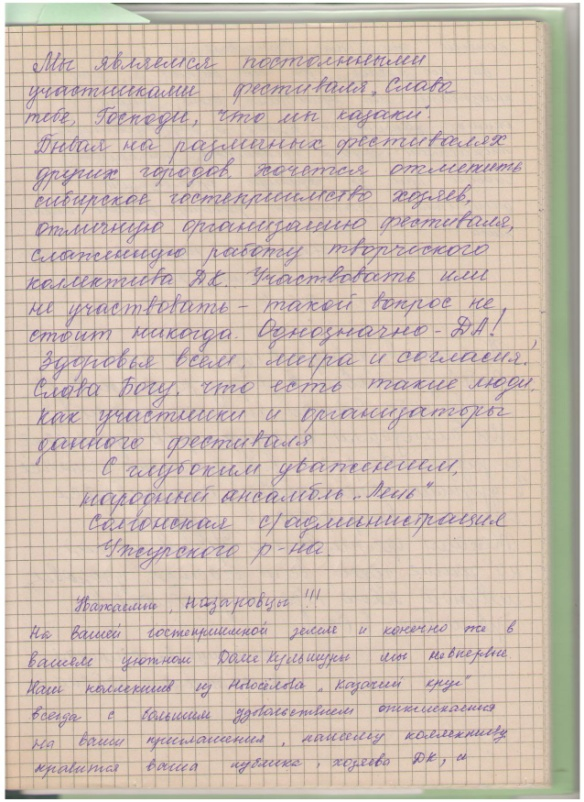 Мы являемся постоянными
участниками фестиваля „Слава
тебе, Господи, что мы казаки".
Бывая на различных фестивалях
других городов хочется отметить
сибирское гостеприимство хозяев,
отличную организацию фестиваля,
слаженную работу творческого
коллектива ДК. Участвовать или
не участвовать – такой вопрос не
стоит никогда. Однозначно - ДА!
Здоровья всем, мира и согласия!
Слава Богу, что есть такие люди,
как участники и организаторы
данного фестиваля
С глубоким уважением,
народный ансамбль
Солгонская с/администрация
Ужурского р-на
Уважаемые, назаровцы!!!
На вашей гостеприимной земле и конечно же в
вашем уютном Доме Культуры мы не впервые
Наш коллектив из Новосёлова „Казачий круг"
всегда с большим удовольствием откликается
на ваши приглашения, нашему коллективу
нравится ваша публика, хозяева ДК, и